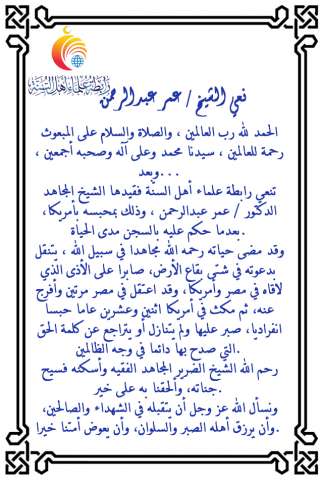 رابطة علماء أهل السنة
نعي الشيخ / عمر عبدالرحمن
الحمد لله رب العالمين ، والصلاة والسلام على المبعوث
رحمة للعالمين ، سيدنا محمد وعلى آله وصحبه أجمعين ،
وبعد...
تنعي رابطة علماء أهل السنّة فقيدها الشيخ المجاهد
الدكتور / عمر عبدالرحمن ، وذلك بمحبسه بأمريكا،
بعدما حكم عليه بالسجن مدى الحياة.
وقد مضى حياته رحمه الله مجاهدا في سبيل الله ، يتنقل
بدعوته في شتى بقاع الأرض، صابرا على الأذى الذي
لاقاه في مصر وأمريكا، وقد اعتقل في مصر مرتين وأفرج
عنه، ثم مكث في أمريكا اثنين وعشرين عاما حبسا
انفراديا، صبر عليها ولم يتنازل أو يتراجع عن كلمة الحق
التي صدح بها دائما في وجه الظالمين.
رحم الله الشيخ الضرير المجاهد الفقيه وأسكنه فسيح
جناته، وألحقنا به على خير.
ونسأل الله عز وجل أن يتقبله في الشهداء والصالحين،
وأن يرزق أهله الصبر والسلوان، وأن يعوض أمتنا خيرا.